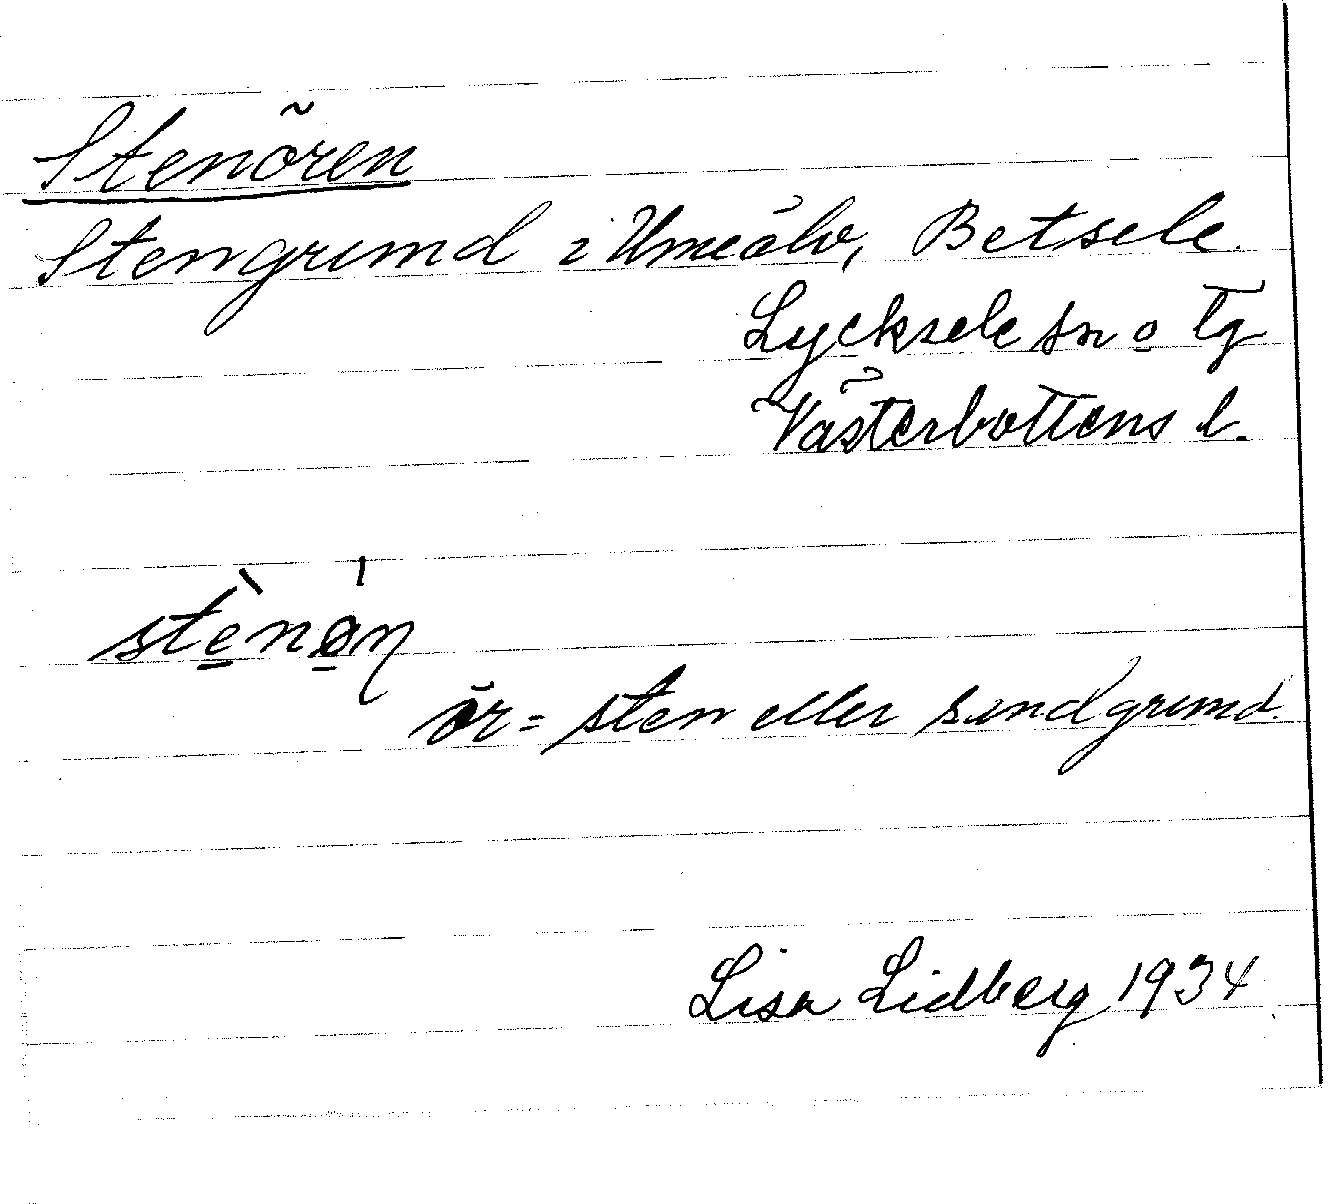 Stenören
Stengrund i Umeälv, Betsele.
Lycksele sn o tg
Västerbottens l.
stènǫ́n
ör = sten eller sandgrund.
Lisa Lidberg 1934